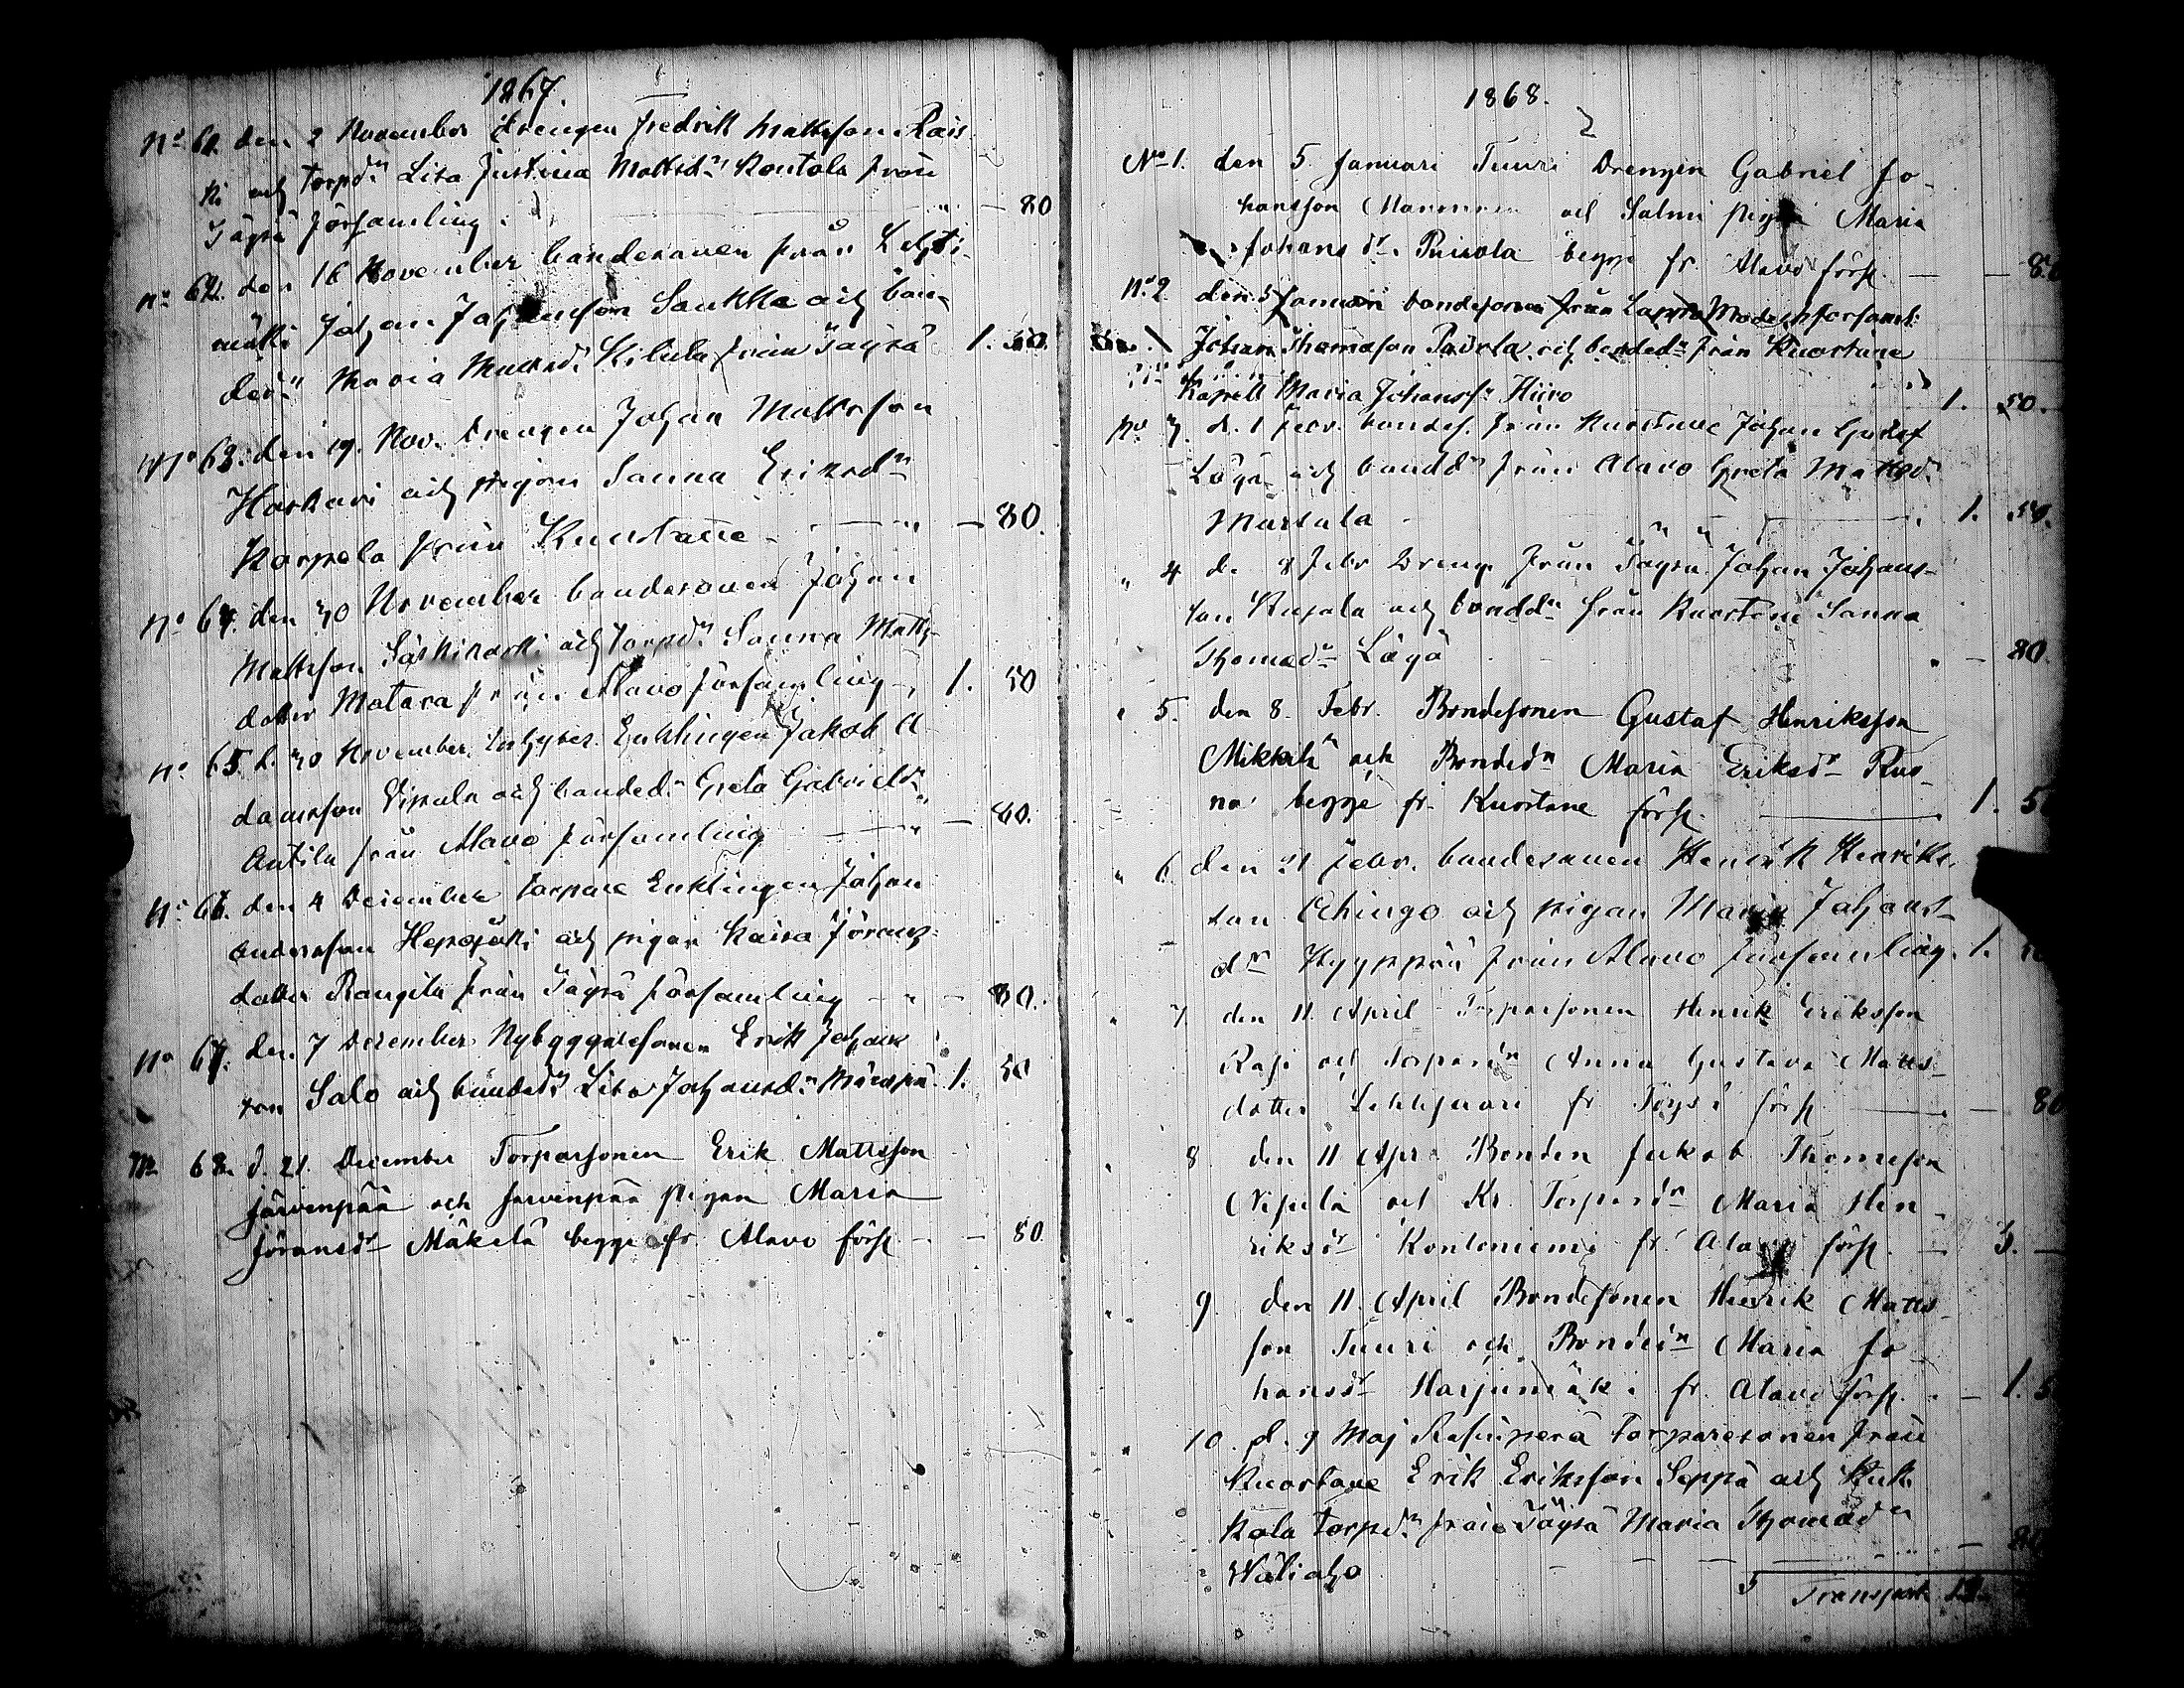 1867.
No 61. den 2 November Drengen Fredrik Mattsson Rais
ki och torpdn Lisa Justina Mattsdn Kontola från
Töysä församling. — 80
No 62. den 16 November bondesonen från Lehti-
mäki Johan Johansson Saukko och bon-
dedn Maria Kilula från Töysä 1. 50.
No 63. den 19. Nov. drengen Johan Mattsson
Harkari och pigan Sanna Eriksdn
Karpela från Kuortane — 80.
No 64. den 30 November bondesonen Johan
Mattsson och torpdn Sanna Matts-
dotter Matara från Alavo församling 1. 50
No 65. d. 30 November Enklingen Jakob A
damsson och bondedn Greta Gabrielsdn
Antila från Alavo församling — 80.
No 66. den 4 December torpare Enklingen Johan
Andersson Hepojoki och pigan Kaisa Jörans-
dotter Rangila från Töysä församling — 80.
No 67. den 7 December Nybyggaresonen Erik Johans
son Salo och bondedn Lisa Johansdn 1. 50
No 68. d. 21 December Torparsonen Erik Mattsson
Järvenpää och Jarvenpää pigan Maria
Jöransdr Mäkelä begge fr. Alavo förs — 80
1868.
No 1. den 5 Januari Tuuri Drengen Gabriel Jo-
hansson och Salmi pigan Maria
Johansdr Puisola begge fr. Alavo förs — 8
No 2 den 5 Januari bondesonen från Lappo församl:
Johan Thomasson och bondedn från Kuortane
Kapell Maria Johansdr Hiiro 1. 50.
No 3. d. 1 Febr. bondes. från Kuortane Johan Gustaf
Löyä och bonddn från Alavo Greta Mattsd.
Mursula 1. 50.
" 4 d. 8 Febr Dreng. från Töysä Johan Johans-
son Kujala och bonddn från Kuortane Sanna
Thomasdn Löyä — 80.
" 5. den 8. Febr. Bondesonen Gustaf Henriksson
Mikkilä och Bondedn Maria Eriksdr Ruo-
na begge fr. Kuortane förs. 1. 5
" 6. den 21 Febr. bondesonen Henrik Henriks-
son Ochingo och pigan Maria Johans-
dr Kyyppää från Alavo församling. 1.
" 7 den 11 April Torparsonen Henrik Eriksson
och Torpardn Anna Gustava Matts-
dotter fr Töysä förs — 80
" 8 den 11 Apr. Bonden Jakob Thomasson
och Kr. Torpardn Maria Hen-
riksdr Kontoniemi fr. förs. — 3. —
" 9 den 11. April Bondesonen Henrik Matts-
son Tuuri och Bondedn Maria Jo-
hansdr Harjumäki fr. Alavo förs. — 1. 5
" 10. d. 9 Maj torparesonen från
Kuortane Erik Eriksson Seppä och Kuk
kola torpdn från Töysä Maria Thomasdn
Wäliaho
Transport